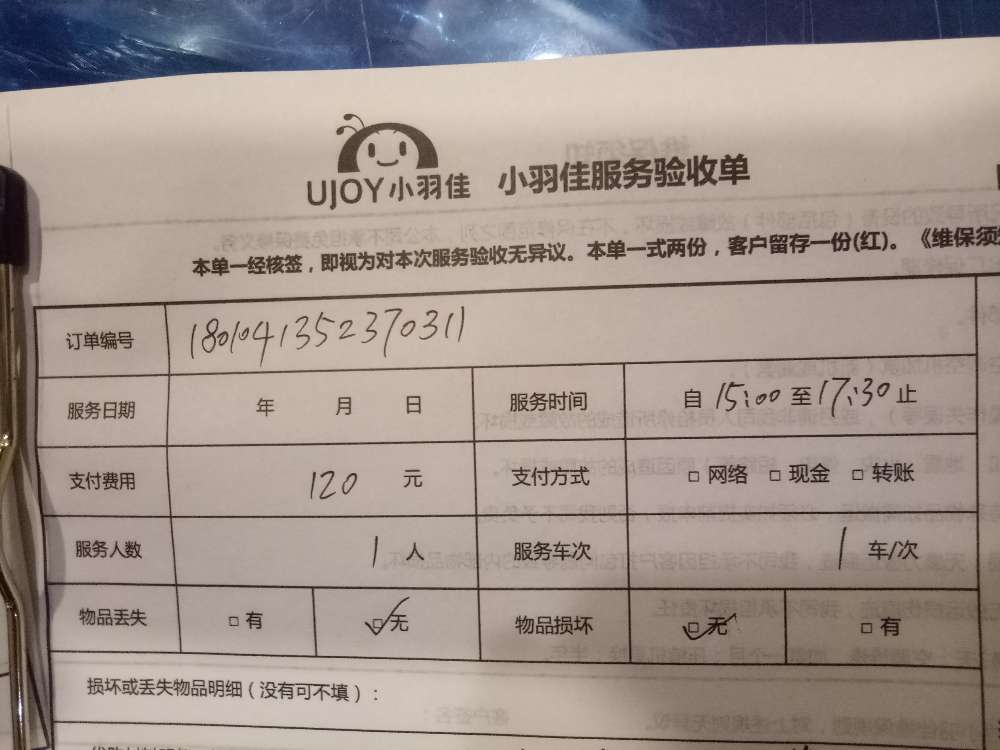 UJOY小羽佳 小羽佳服务验收单
本单一经核签，即视为对本次服务验收无异议。本单一式两份，客户留存一份(红)。《维保须
订单编号 1801041352370311
服务日期 年 月 日 服务时间 自 15:00 至 17:30 止
支付费用 120 元 支付方式 □ 网络 □ 现金 □ 转账
服务人数 1 人 服务车次 1 车/次
物品丢失 □ 有 ☑ 无 物品损坏 ☑ 无 □ 有
损坏或丢失物品明细（没有可不填）：